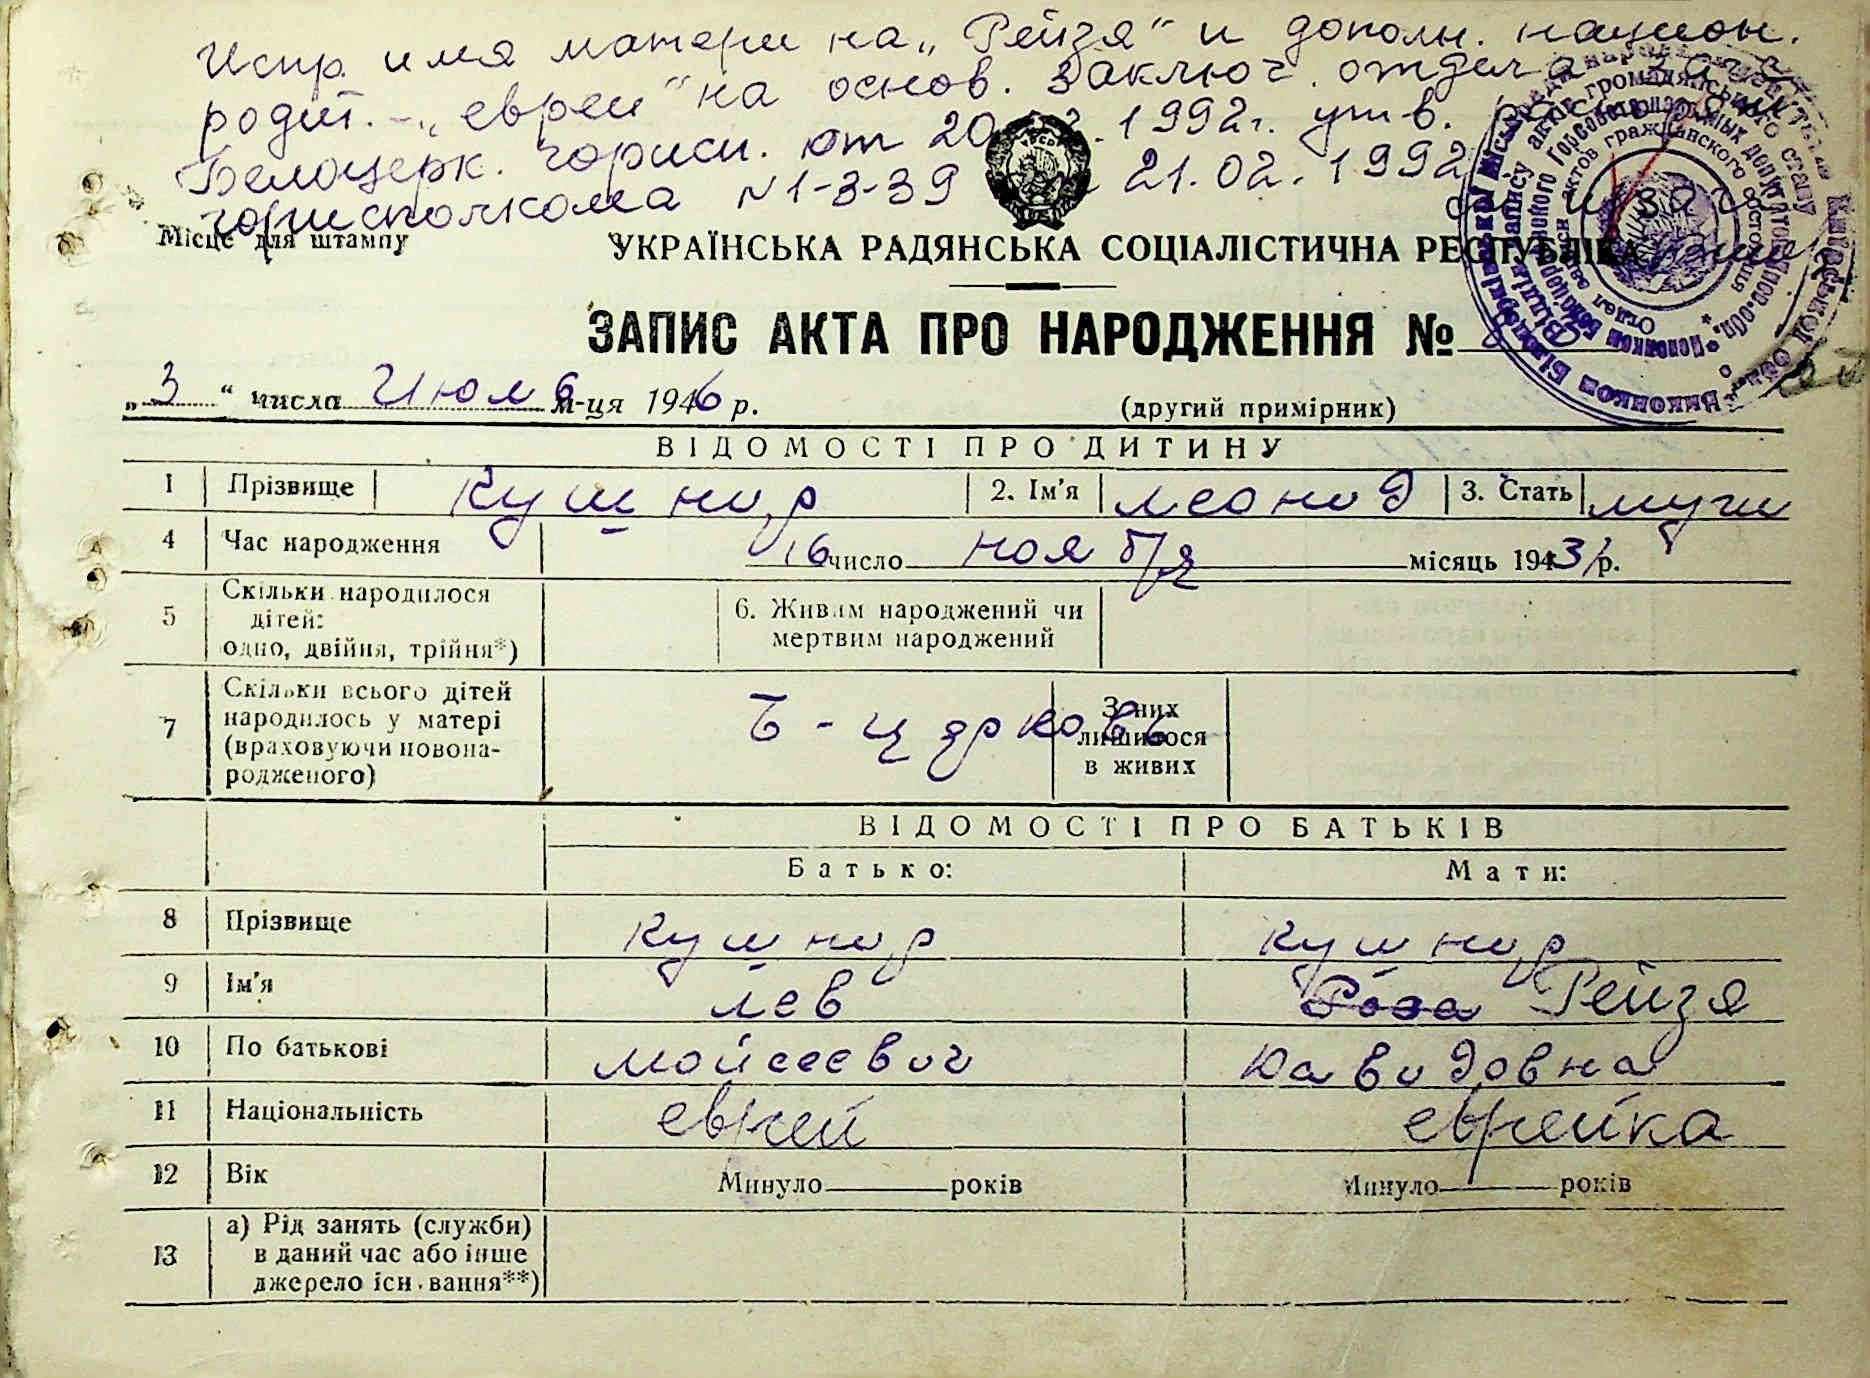 Испр. имя матери на „Рейзя“ и дополн. национ.
родит. - „евреи“ на основ. заключ. отдела загс
Белоцерк. горисп. от 20.02.1992г. утв.
горисполкома N 1-3-39 21.02.1992
Місце для штампу
УКРАЇНСЬКА РАДЯНСЬКА СОЦІАЛІСТИЧНА РЕСПУБЛІКА
ЗАПИС АКТА ПРО НАРОДЖЕННЯ №
„3“ числа Июля м-ця 1946 р. (другий примірник)
ВІДОМОСТІ ПРО ДИТИНУ
1 Прізвище Кушнир 2. Ім'я Леонид 3. Стать муж
4 Час народження 16 число ноября місяць 1943 р.
5 Скільки народилося дітей: одно, двійня, трійня*) 6. Живим народжений чи мертвим народжений
7 Скільки всього дітей народилось у матері (враховуючи новонародженого) Б-Церковь З них лишилося в живих
ВІДОМОСТІ ПРО БАТЬКІВ
Батько: Мати:
8 Прізвище Кушнир Кушнир
9 Ім'я Лев Роза Рейзя
10 По батькові Мойсеевич Давидовна
11 Національність еврей еврейка
12 Вік Минуло років Минуло років
13 а) Рід занять (служби) в даний час або інше джерело існування**)